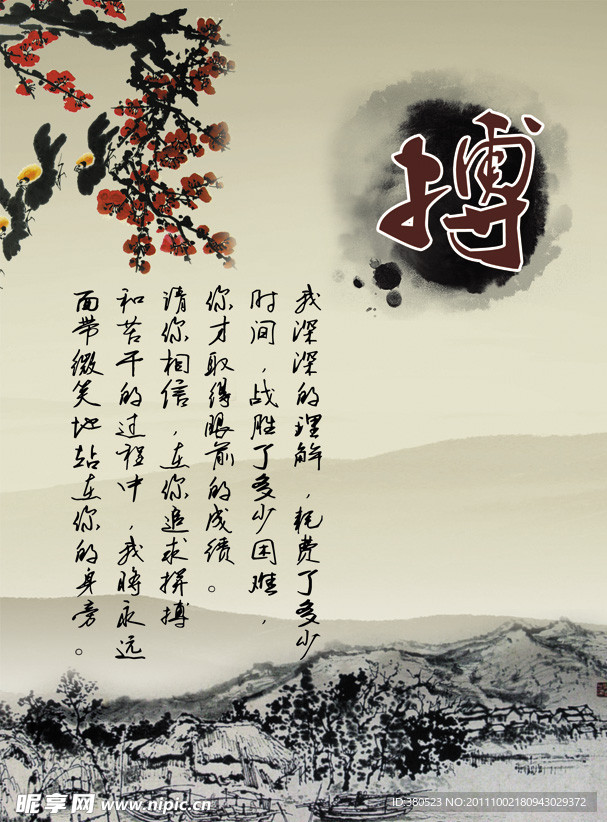 搏
我深深的理解，耗费了多少
时间，战胜了多少困难，
你才取得眼前的成绩。
请你相信，在你追求拼搏
和苦干的过程中，我将永远
面带微笑地站在你的身旁。
昵享网 www.nipic.cn
ID:380523 NO:20111002180943029372